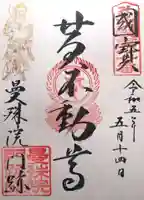 國寶
令和五年
五月十四日
黄不動尊
曼殊院
門跡